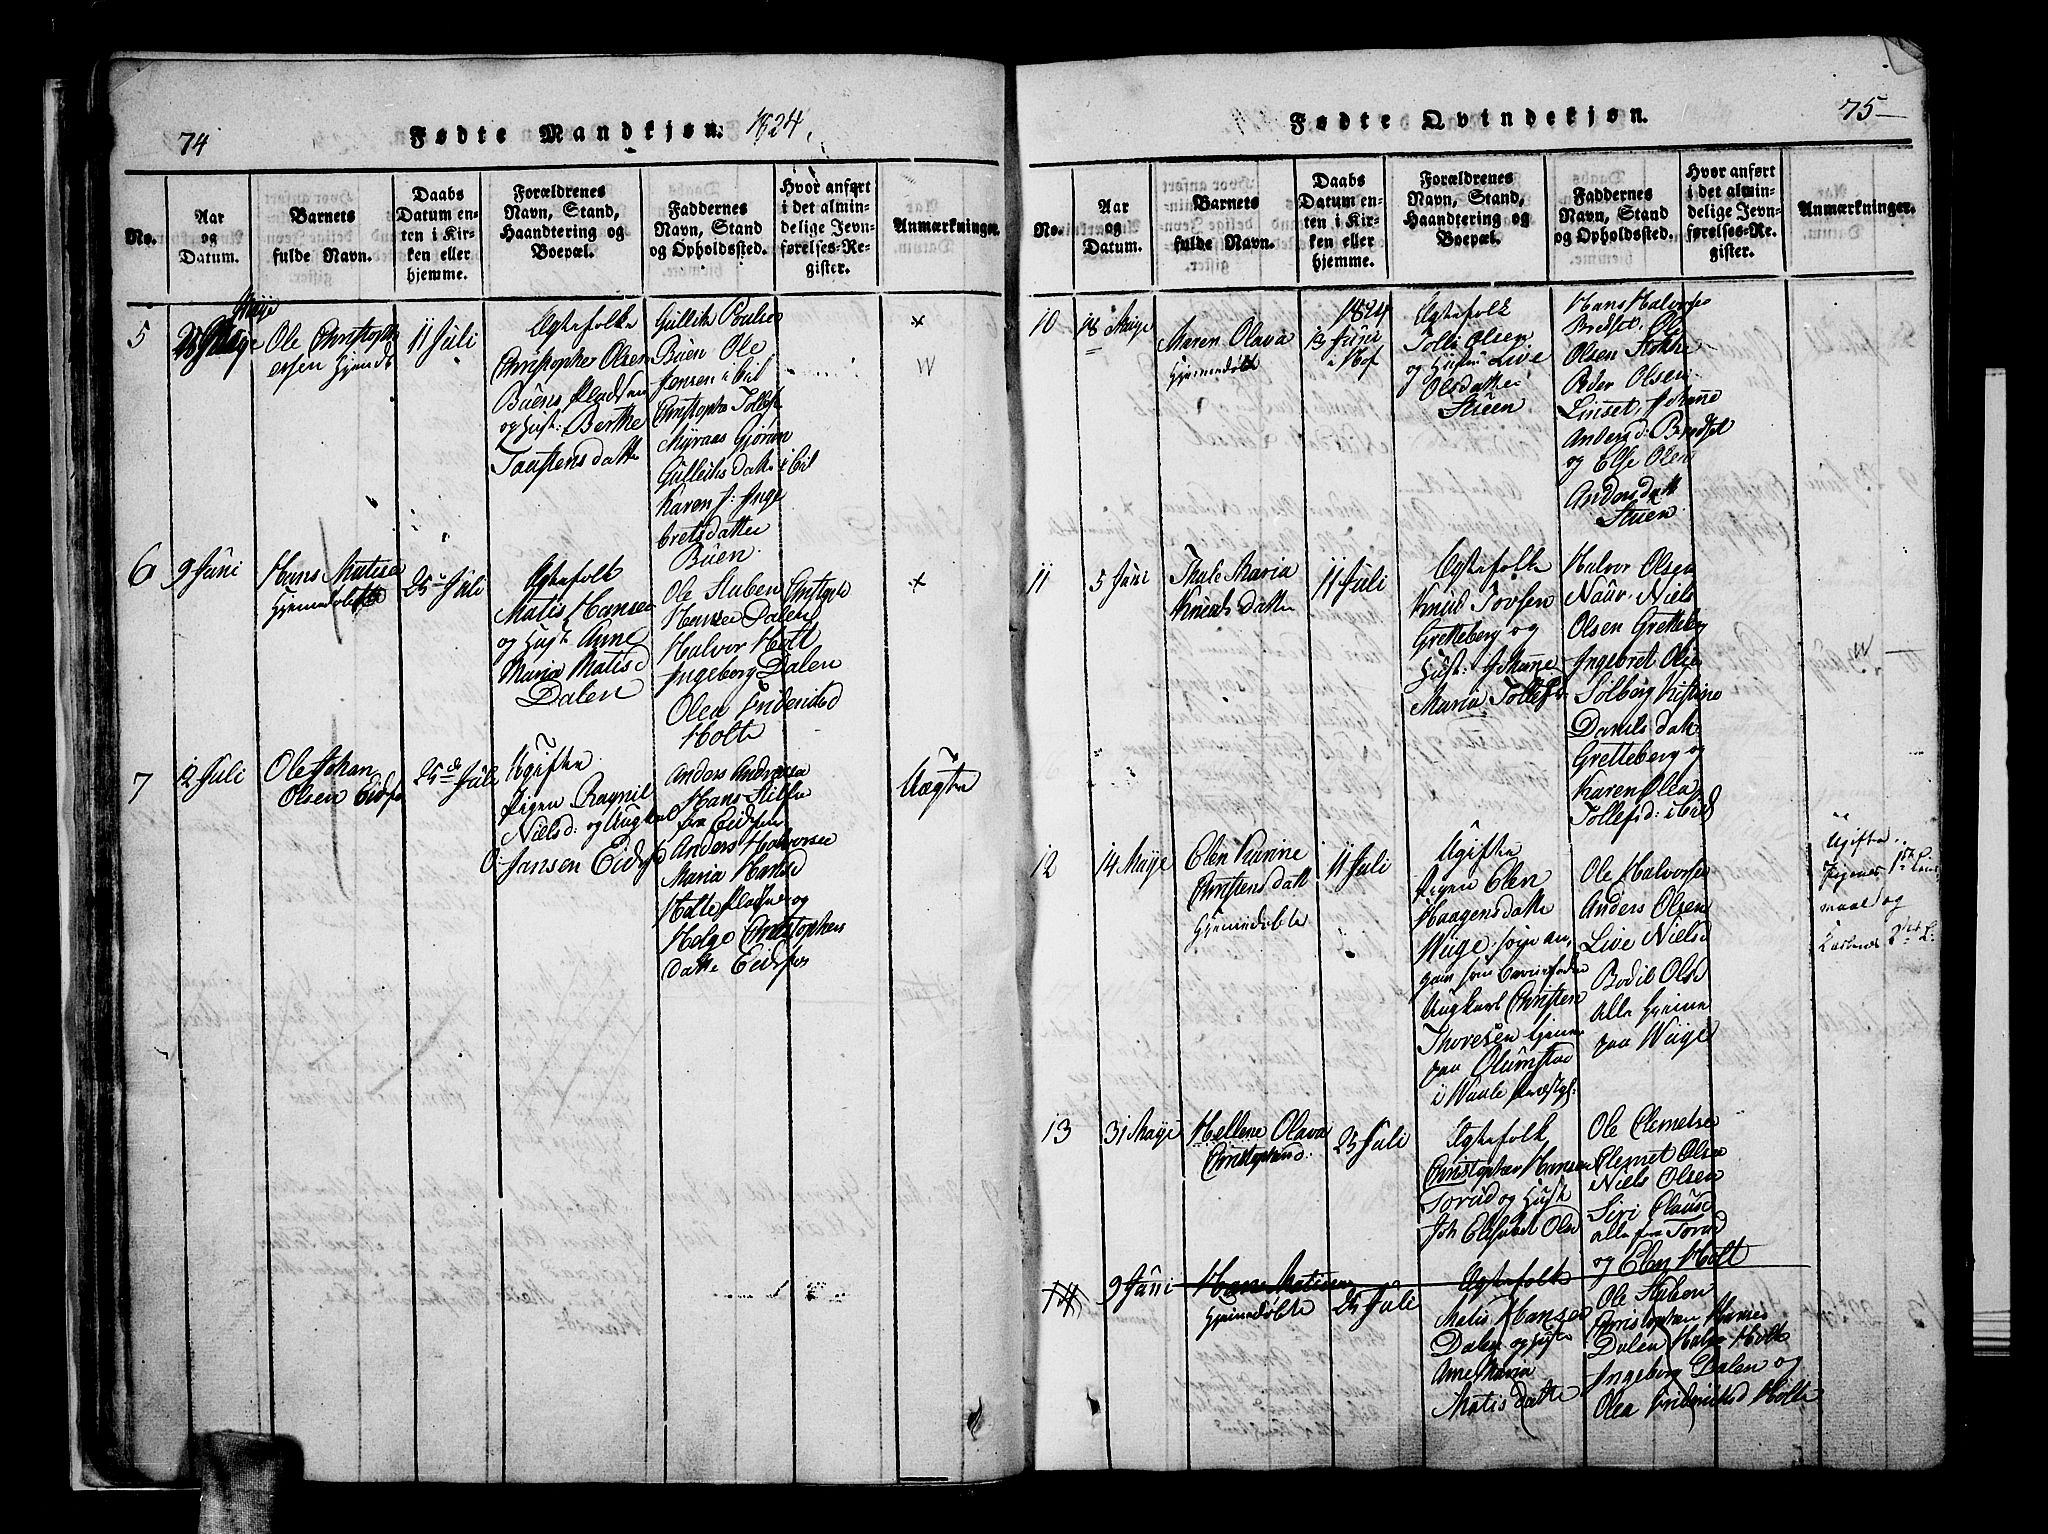 74
Fødte Mandkjøn. 1824.
No.
Aar
og
Datum.
Barnets
fulde Navn.
Daabs
Datum en-
ten i Kir-
ken eller
hjemme.
Forældrenes
Navn, Stand,
Haandtering og
Boepæl.
Faddernes
Navn, Stand
og Opholdssted.
Hvor anført
i det almin-
delige Jevn-
førelses-Re-
gister.
Anmærkninger.
5
Maye
Ole Christoph
ersen Hjemdt
11 Juli
Ægtefolk
Christopher Olsen
Buens Pladsen
og Hust: Berthe
Toustensdatte
Gullik Poulse
Buen Ole
Jensen i bil
Christophe Tollefs
Myraas Gjøran
Gulleiksdatte i bil
Karen J: Inge
bretsdatter
Buen.
6
9 Juni
Hans Matisen
Hjemedøbt
25 Juli
Ægtefolk
Matis Hansen
og Hust: Anne
Maria Matisd
Dalen
Ole Stuben Christophe
Hansen Dalen
Halvor Holt
Ingeborg Dalen
Olea Fridrichsd
Holte
7
12 Juli
Ole Johan
Olsen Eidsfos
25de Juli
Ugifte
Pigen Ragnil
Nielsd: og Ungkarl
O: Jansen Eidsfos
Anders Andersen
Hans
fra Eidsfos
Anders Halvorsen
Maria Hansd
Holte Pladsen og
Helge Christophers
datte Eidsfos
Uægte
75
Fødte Qvindekjøn.
No.
Aar
og
Datum.
Barnets
fulde Navn.
Daabs
Datum en-
ten i Kir-
ken eller
hjemme.
Forældrenes
Navn, Stand,
Haandtering og
Boepæl.
Faddernes
Navn, Stand
og Opholdssted.
Hvor anført
i det almin-
delige Jevn-
førelses-Re-
gister.
Anmærkninger.
10
18 Maye
Maren Olava
Hjemmedøbt
1824
13 Juni
i Hof
Ægtefolk
Tolli Olsen
og Hustru Live
Olsdatter
Stuen
Hans Halvorse
Bredset, Ole
Olsen Stokke
Peder Olsen
Linset, Johanne
Andersd: Bredset
og Else Olea
Andersdatt
Stuen
11
5 Juni
Thale Maria
Knudsdatte
11 Juli
Ægtefolk
Knud Tovsen
Gretteberg og
Hust: Johanne
Maria Tollefsd
Halvor Olsen
Nauv. Niels
Olsen Gretteberg
Ingebret Olse
Solberg Kistine
Danilsdatte
Gretteberg og
Karen Olea
Tollefsd: i bil
12
14 Maye
Elen Karine
Christensdatt
Hjemedøbte
11 Juli
Ugifte
Pigen Elen
Haagensdatte
Wiige
Ungkarl Christen
Thoresen tjene
paa Olumstad
i Waale Præstgl:
Ole Halvorse
Anders Olsen
Live Nielsd
Bodil Olsd
alle hjeme
paa Wiige
Ugifte
Pigens 1ste Leier
maal og
Karlens 2det L:
13
31 Maye
Hellene Olava
Christophersd:
25 Juli
Ægtefolk
Christopher Hansen
Torud og Hust
Joh Elisabet Olsd
Ole Clemetsen
Clemet Olsen
Niels Olsen
Siri Clausd
alle fra Torud
og Elen Holt
14
9 Juni
Hans Matisen
Hjemmedøbte
25 Juli
Ægtefolk
Matis Hansen
Dalen og Hust
Anne Maria
Matisdatte
Ole Stuben
Christopher Hansen
Dalen Halvor Holt
Ingeborg Dalen og
Olea Fridrichsd Holte